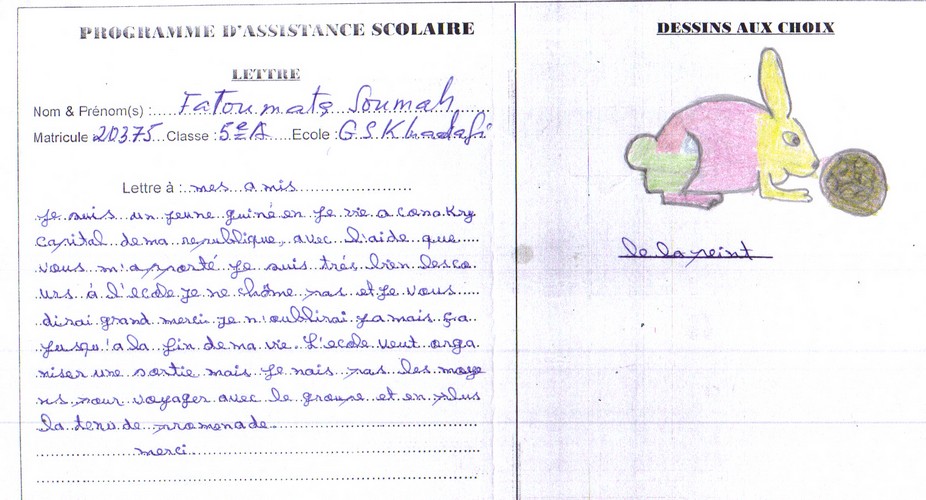 PROGRAMME D'ASSISTANCE SCOLAIRE
LETTRE
Nom & Prénom(s) : Fatoumata Soumah
Matricule 20375 Classe : 5e A Ecole : G.S.Khadafi
Lettre à : mes amis
Je suis un jeune guiné en Je vie a Conakry
Capital de ma republique, avec l'aide que
vous m'apporté Je suis trés bien les co
urs à l'ecole Je ne chôme pas et Je vous
dirai grand merci Je n'oublirai Jamais ça
Jusqu'a la fin de ma vie. L'ecole veut orga
niser une sortie mais Je nais pas les moye
ns pour voyager avec le groupe et en plus
la tenu de promenade
merci
DESSINS AUX CHOIX
le la peint